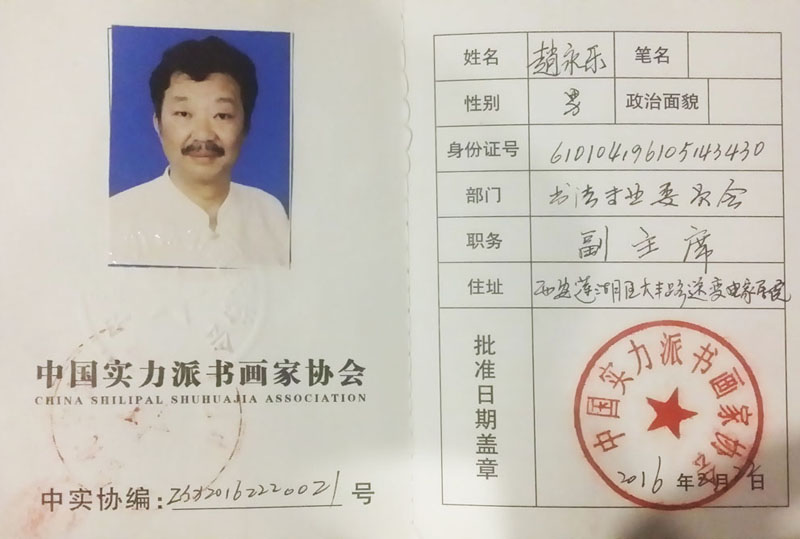 中国实力派书画家协会
CHINA SHILIPAL SHUHUAJIA ASSOCIATION
中实协编：ZSX20162220021号
姓名 趙永乐 笔名
性别 男 政治面貌
身份证号 610104196105143430
部门 书法专业委员会
职务 副主席
住址 西安莲湖区大丰路送变电家居院
批准日期盖章
中国实力派书画家协会
2016年2月22日